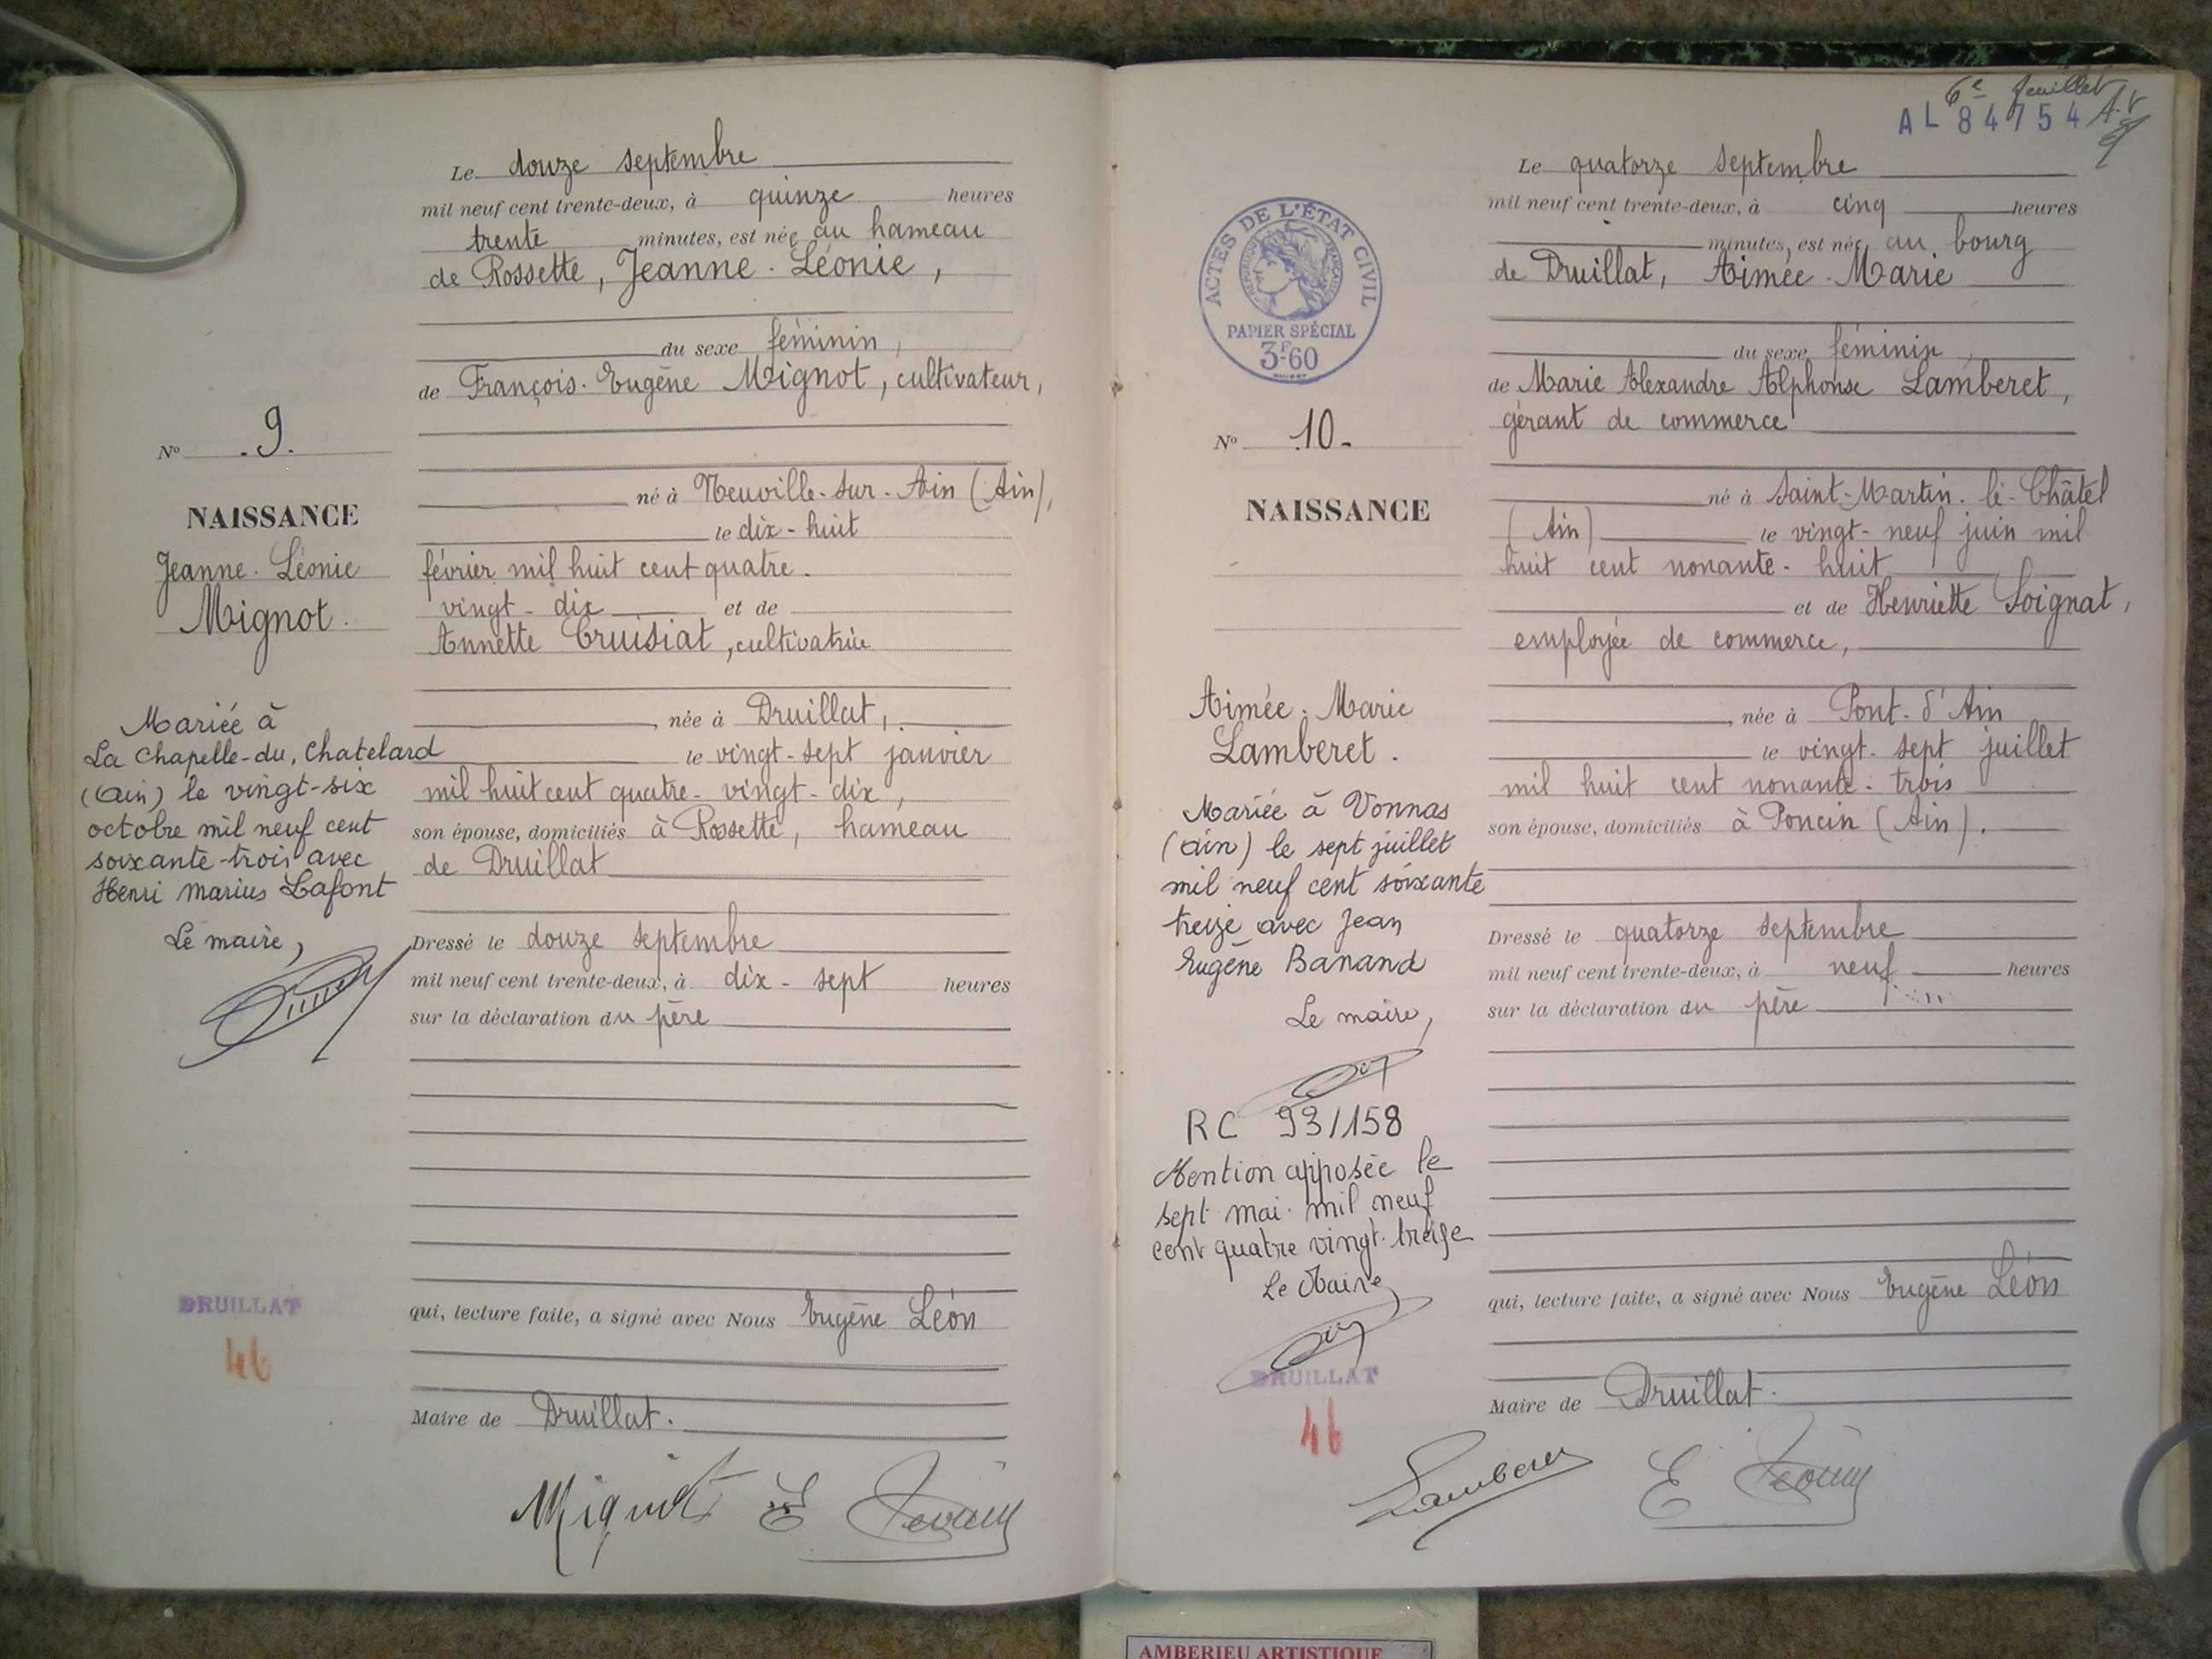 Le douze septembre
mil neuf cent trente-deux, à quinze heures
trente minutes, est née au hameau
de Rossette, Jeanne-Léonie,
du sexe féminin,
de François-Eugène Mignot, cultivateur,
né à Neuville-sur-Ain (Ain),
le dix-huit
février mil huit cent quatre-
vingt-dix et de
Annette Cruisiat, cultivatrice
née à Druillat,
le vingt-sept janvier
mil huit cent quatre-vingt-dix,
son épouse, domiciliés à Rossette, hameau
de Druillat
Dressé le douze septembre
mil neuf cent trente-deux, à dix-sept heures
sur la déclaration du père
qui, lecture faite, a signé avec Nous Eugène Léon
Maire de Druillat.
Mignot E
No 9.
NAISSANCE
Jeanne-Léonie
Mignot.
Mariée à
La Chapelle-du-Chatelard
(Ain) le vingt-six
octobre mil neuf cent
soixante-trois avec
Henri Marius Lafont
Le maire,
DRUILLAT
46
6e feuillet
AL 84754
Le quatorze septembre
mil neuf cent trente-deux, à cinq heures
minutes, est née au bourg
de Druillat, Aimée-Marie
du sexe féminin,
de Marie Alexandre Alphonse Lamberet,
gérant de commerce
né à Saint-Martin-le-Châtel
(Ain) le vingt-neuf juin mil
huit cent nonante-huit
et de Henriette Soignat,
employée de commerce,
née à Pont-d'Ain
le vingt-sept juillet
mil huit cent nonante-trois
son épouse, domiciliés à Poncin (Ain).
Dressé le quatorze septembre
mil neuf cent trente-deux, à neuf heures
sur la déclaration du père
qui, lecture faite, a signé avec Nous Eugène Léon
Maire de Druillat.
Lamberet E
ACTES DE L'ÉTAT CIVIL
RÉPUBLIQUE FRANÇAISE
PAPIER SPÉCIAL
3F60
No 10.
NAISSANCE
Aimée-Marie
Lamberet.
Mariée à Vonnas
(Ain) le sept juillet
mil neuf cent soixante
treize avec Jean
Eugène Banand
Le maire,
RC 93/158
Mention apposée le
sept mai mil neuf
cent quatre vingt-treize
Le Maire
DRUILLAT
46
AMBERIEU ARTISTIQUE